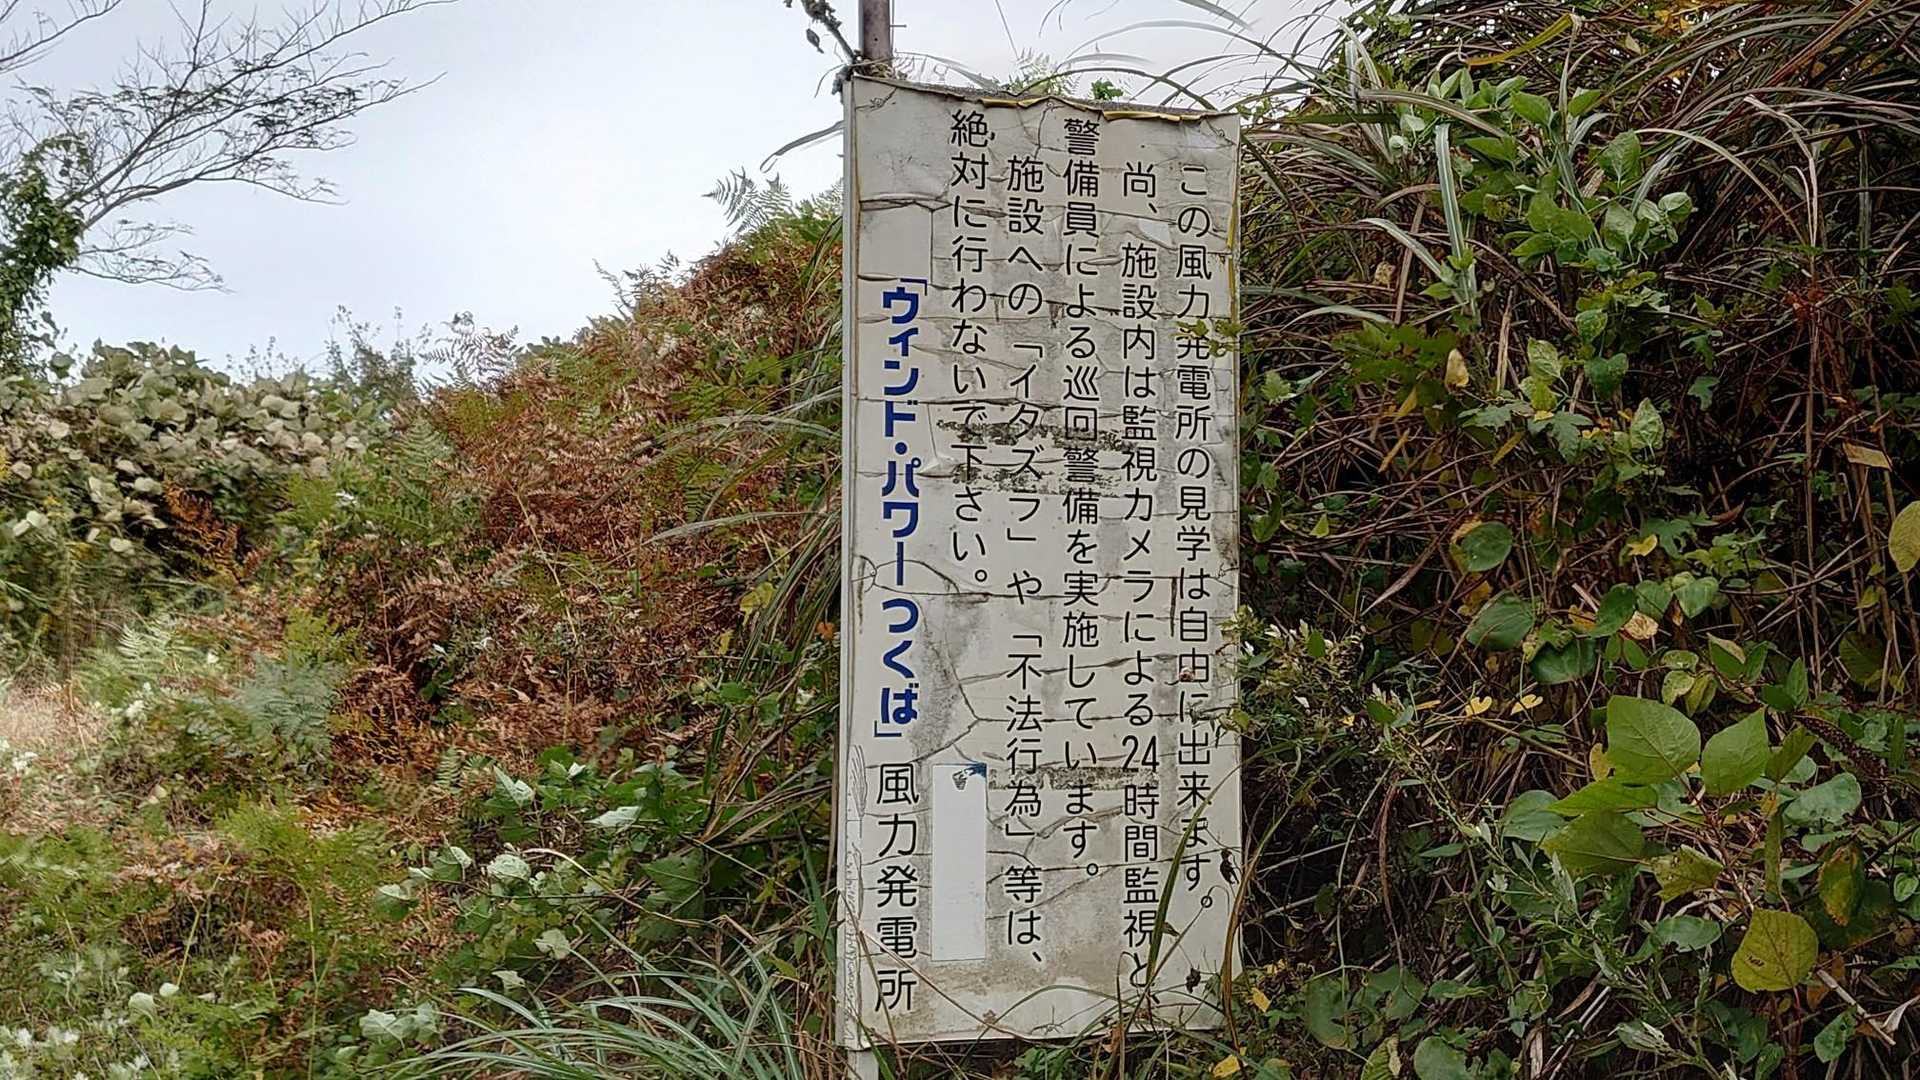 この風力発電所の見学は自由に出来ます。
尚、施設内は監視カメラによる24時間監視と、
警備員による巡回警備を実施しています。
施設への「イタズラ」や「不法行為」等は、
絶対に行わないで下さい。
「ウィンド・パワーつくば」風力発電所